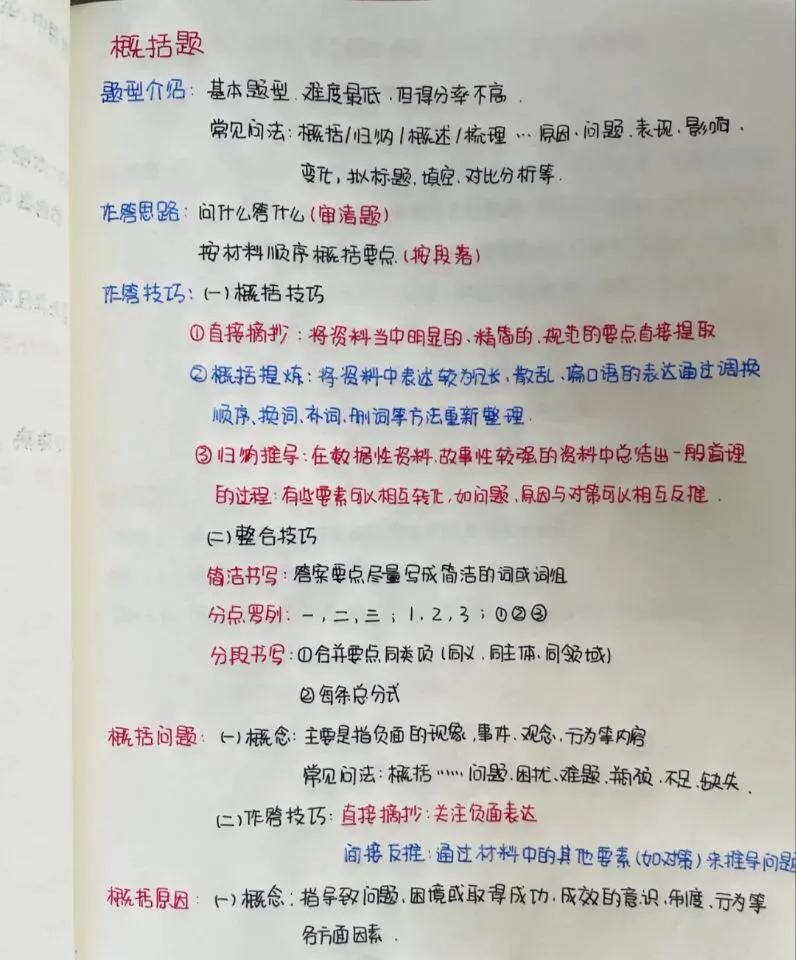 概括题
题型介绍：基本题型．难度最低．但得分率不高．
常见问法：概括/归纳/概述/梳理…原因、问题、表现、影响、
变化，拟标题、填空、对比分析等．
作答思路：问什么答什么(审清题)
按材料顺序概括要点．(按段落)
作答技巧：(一)概括技巧
①直接摘抄：将资料当中明显的、精简的、规范的要点直接提取
②概括提炼：将资料中表述较为冗长，散乱、偏口语的表达通过调换
顺序、换词、补词、删词等方法重新整理．
③归纳推导：在数据性资料、故事性较强的资料中总结出一般道理
的过程；有些要素可以相互转化，如问题、原因与对策可以相互反推．
(二)整合技巧
简洁书写：答案要点尽量写成简洁的词或词组
分点罗列：一，二，三；1，2，3；①②③
分段书写：①合并要点同类项(同义、同主体、同领域)
②每条总分式
概括问题：(一)概念：主要是指负面的现象，事件、观念、行为等内容
常见问法：概括……问题、困扰、难题、瓶颈、不足、缺失．
(二)作答技巧：直接摘抄：关注负面表达
间接反推：通过材料中的其他要素(如对策)来推导问题
概括原因：(一)概念：指导致问题、困境或取得成功，成效的意识、制度、行为等
各方面因素．